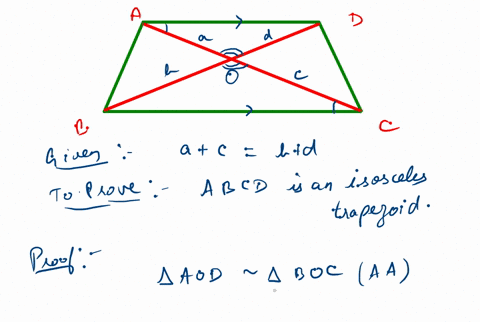 A D
a d
b c
O
B C
Given :- a + c = b + d
To Prove :- ABCD is an isosceles
trapezoid.
Proof :-
Δ AOD ~ Δ BOC (AA)